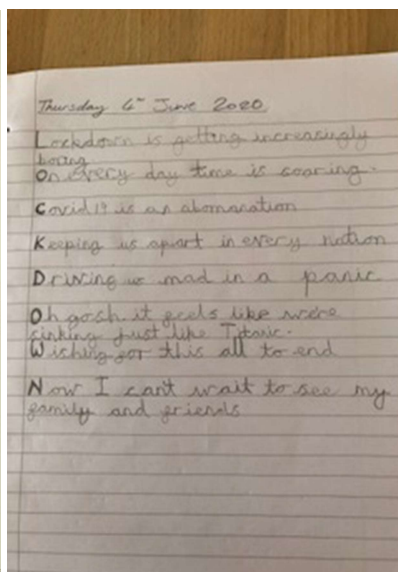 Thursday 4th June 2020
Lockdown is getting increasingly
boring
On every day time is soaring.
Covid 19 is an abomanation
Keeping us apart in every nation
Driving us mad in a panic
Oh gosh it feels like were
sinking just like Titanic.
Wishing for this all to end
Now I can't wait to see my
family and friends